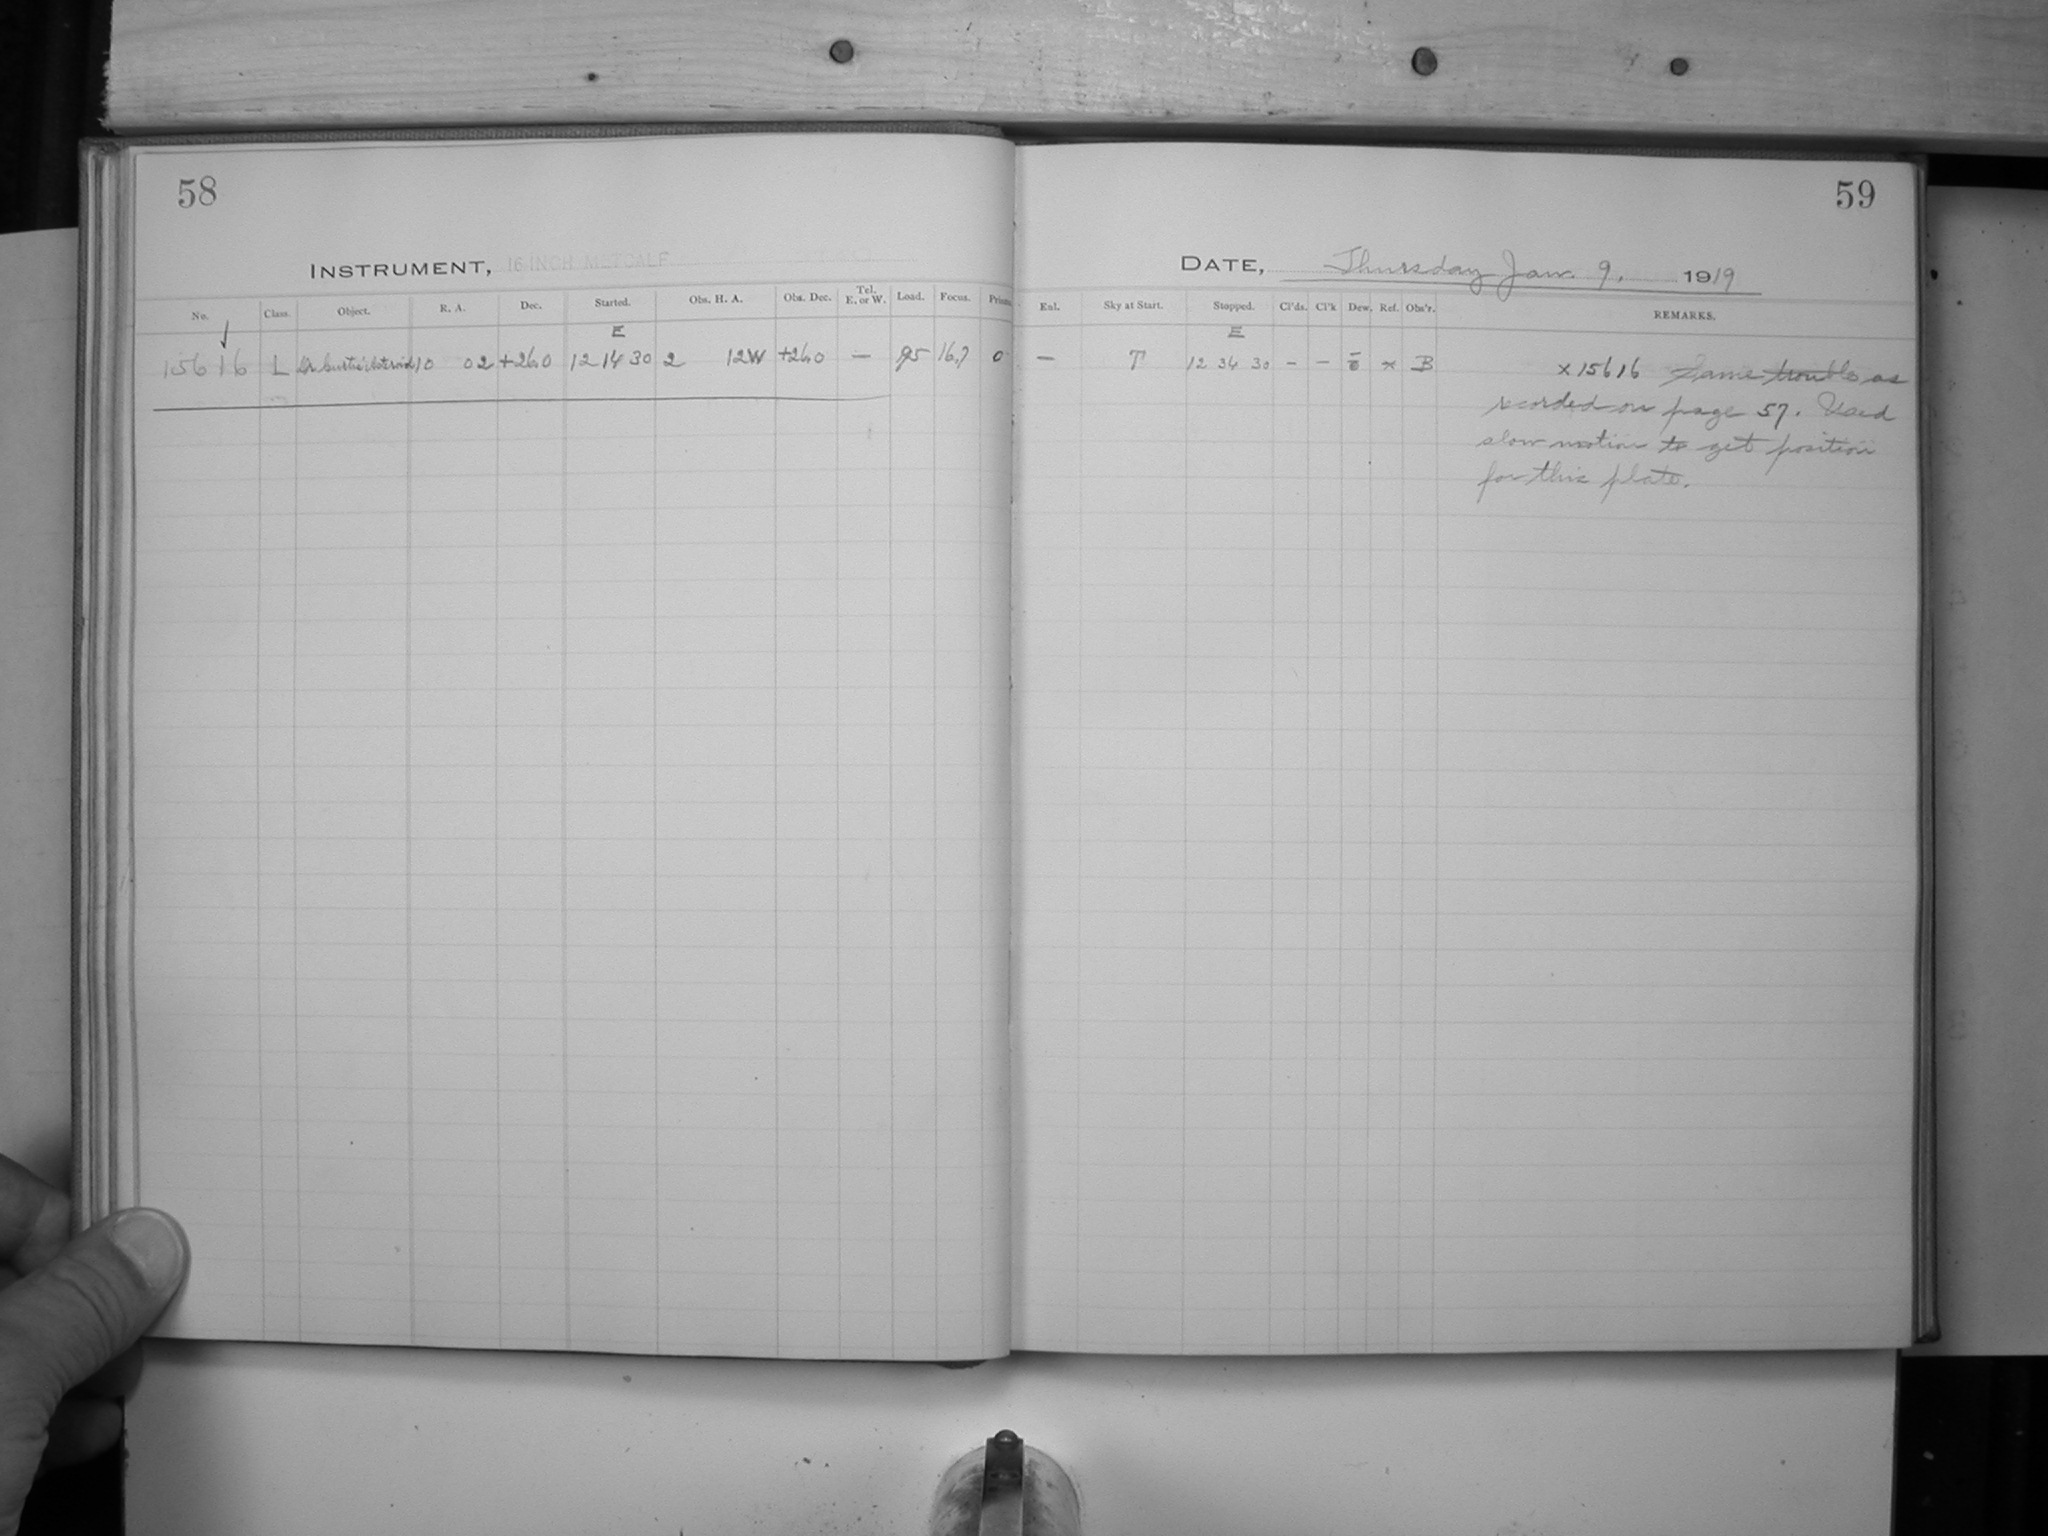 58
INSTRUMENT, 16 INCH METCALF
No. Class. Object. R. A. Dec. Started. Obs. H. A. Obs. Dec. Tel. E. or W. Load. Focus. Prism.
E
15616 L Asteroid 10 02 +26.0 12 14 30 2 12W +26.0 — 95 16.7 0
59
DATE, Thursday Jan. 9, 1919
Enl. Sky at Start. Stopped. Cl'ds. Cl'k Dew. Ref. Obs'r. REMARKS.
E
— T 12 34 30 – – o x B x 15616 Same trouble as
recorded on page 57. Used
slow motion to get position
for this plate.